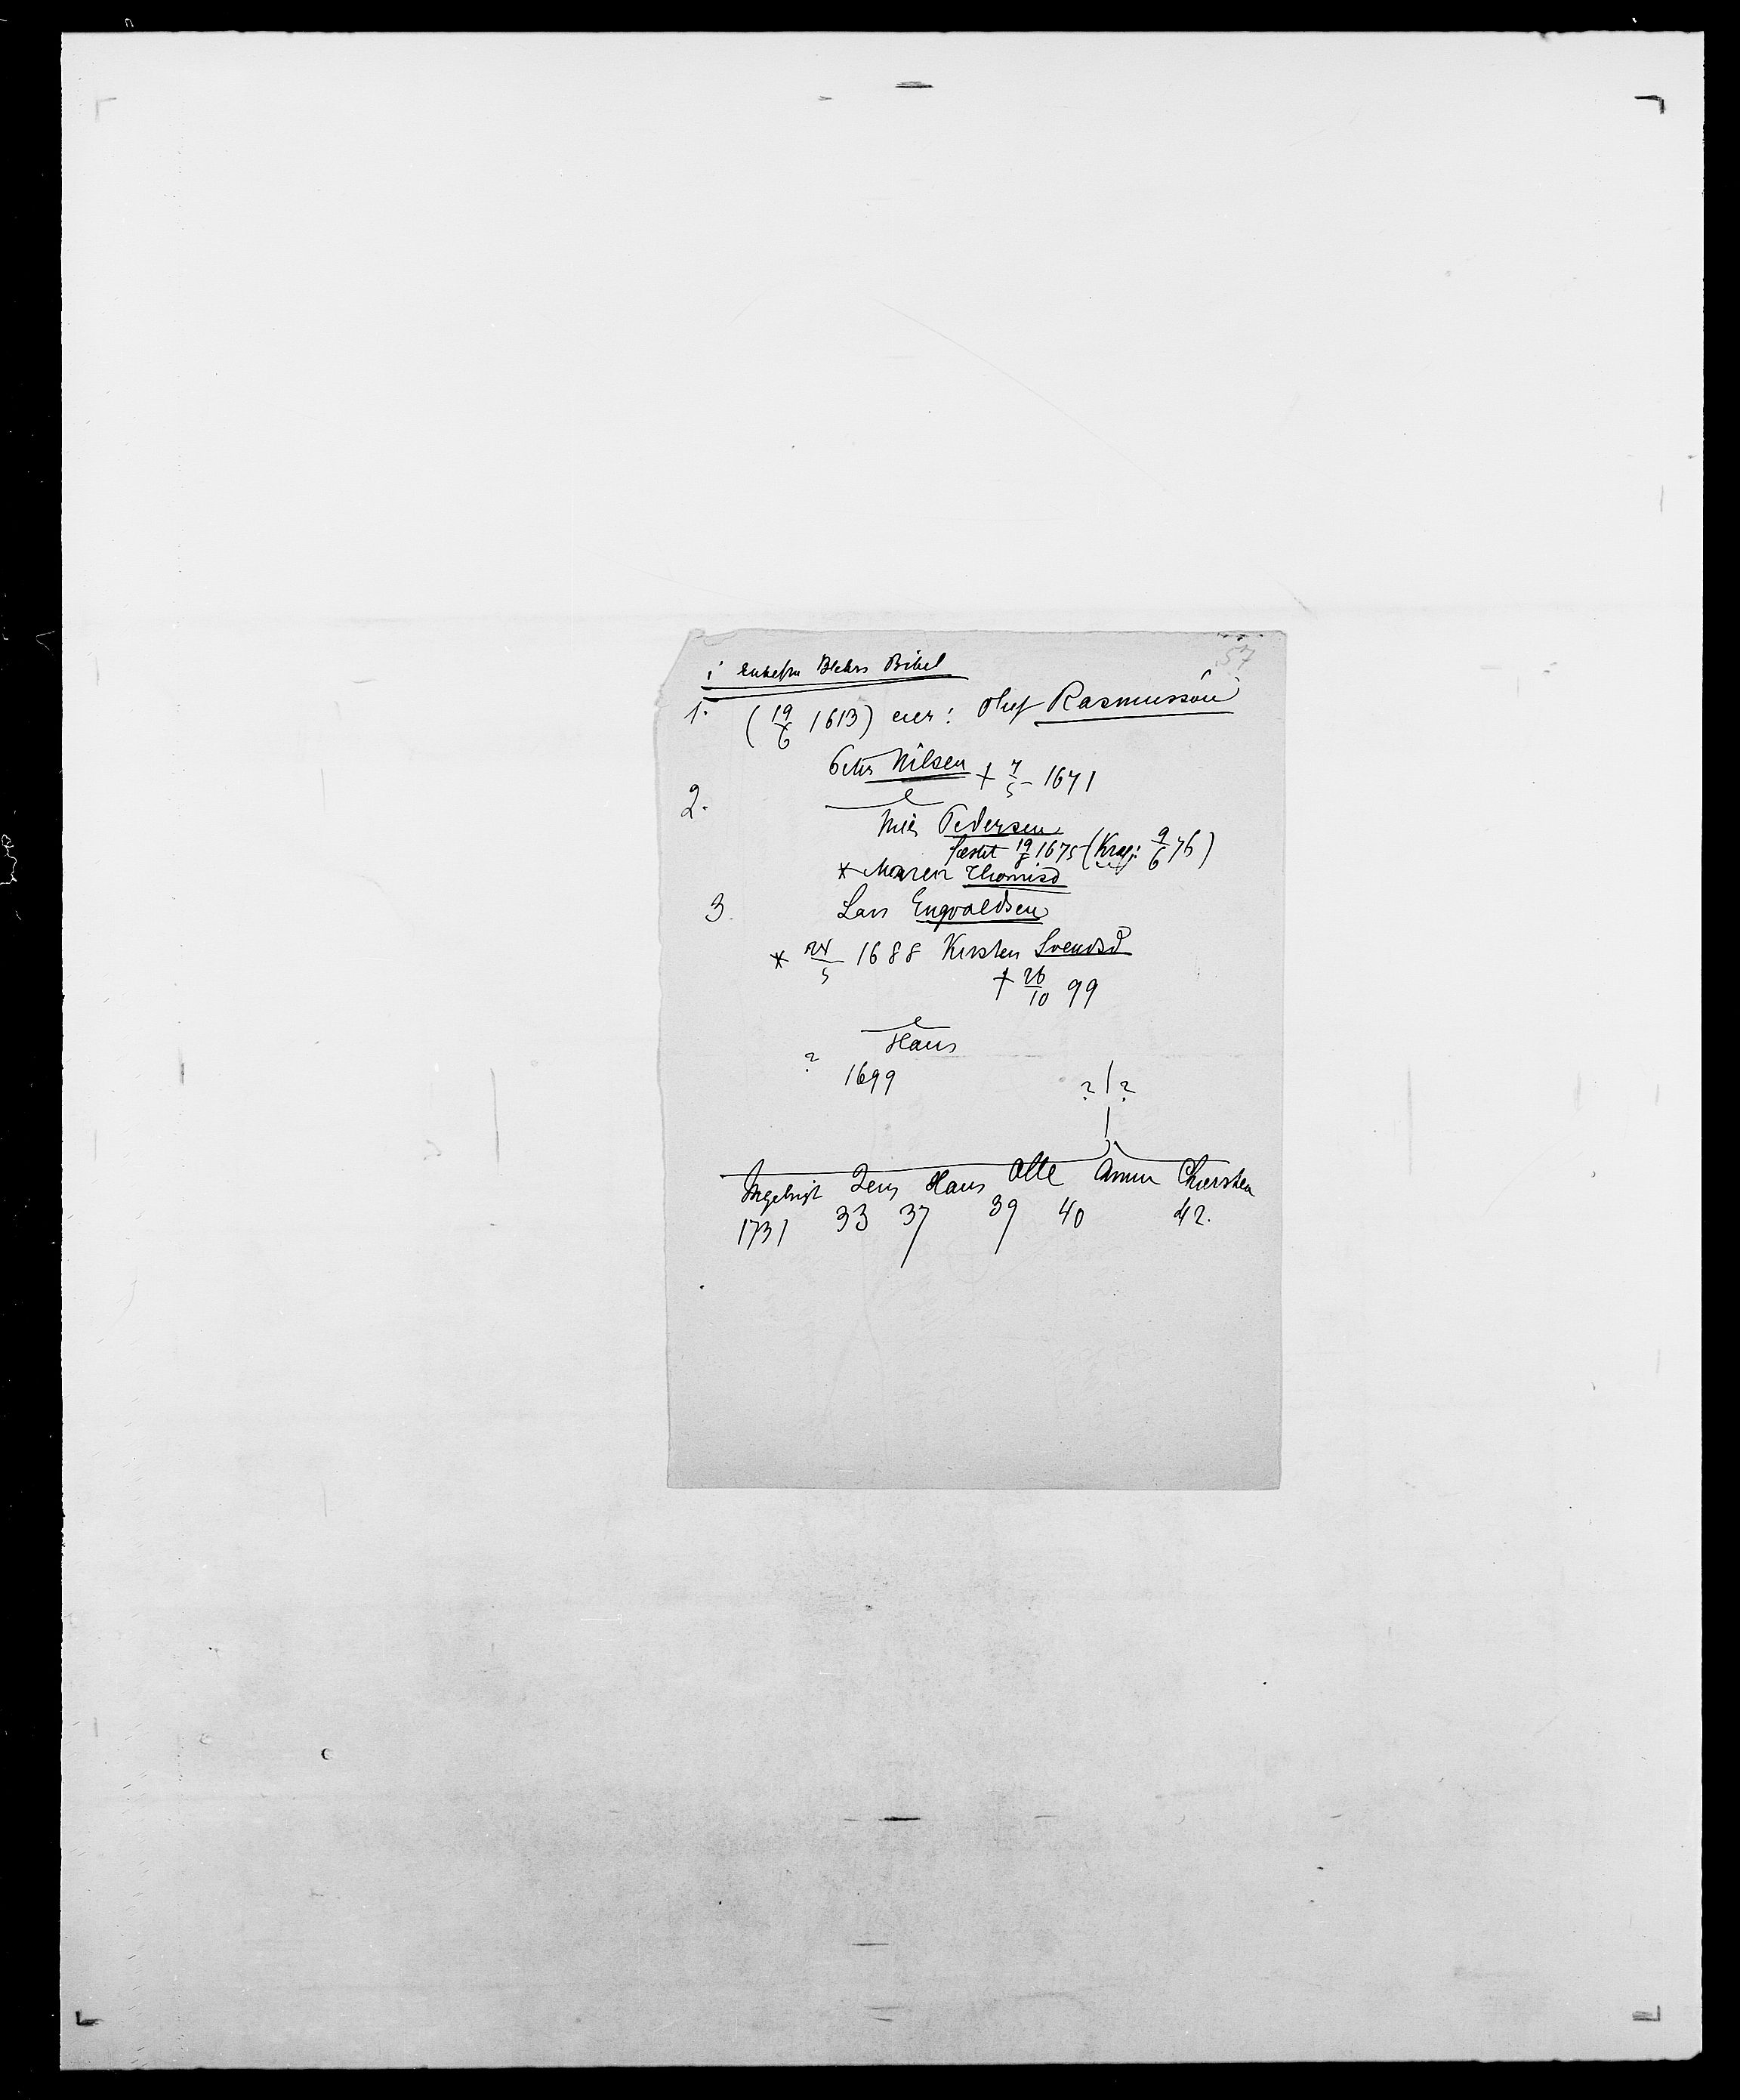 57
i Enkefru Blehrs Bibel
1. (19/6 1613) eier: Oluf Rasmussøn
Peter Nilsen † 7/5 1671
2.
Niels Pedersen
fæstet 19/8 1675 (Krag: 9/6 76)
* Maren Thomisd
3. Lars Engvaldsen
* 24/5 1688 Kirsten Svendsd
† 26/10 99
Hans
? 1699
? | ?
Ingebrigt Jens Hans Olle Anna Chiersten
1731 33 37 39 40 42.